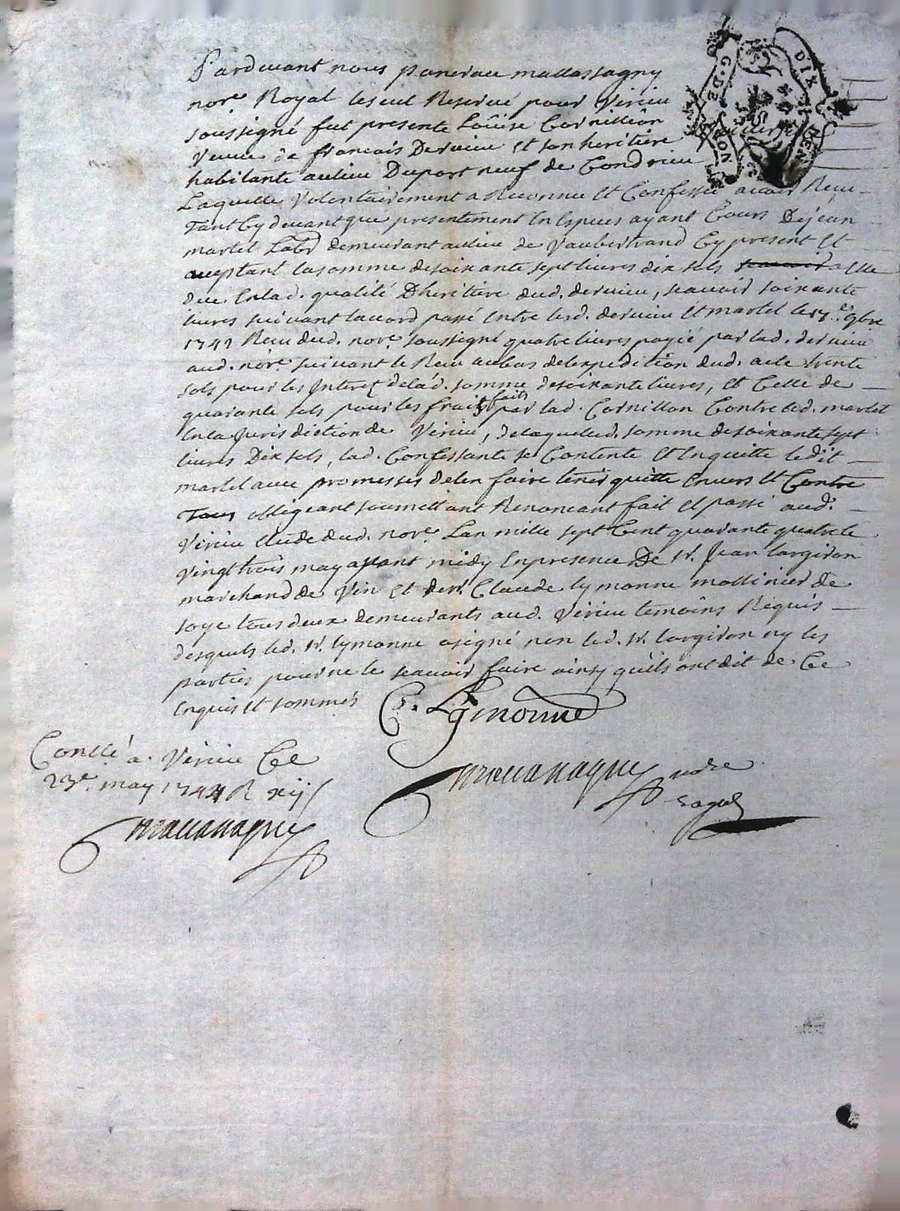 Pardevant nous pancrace mallassagny
nore Royal le seul Reservé pour Virieu
soussigné fut presente Loüise Cornillion
Veuve de francois Dervieu et son heritiere
habitante au lieu Duport neuf de Condrieu
Laquelle Volontairement a Reconnu et Confessé avoir Reçu
tant Cy devant que presentement En Especes ayant Cours De jean
martel Labr demeurant au lieu de Vaubertrand Cy present et
aceptant la somme de soixante sept livres dix sols a Elle
due En lad. qualité D'heritiere dud. dervieu, scavoir soixante
livres suivant laccord passé Entre led. dervieu et martel le 17.e 9bre
1742 Reçu dud. nore. soussigné quatre livres payié par lad. dervieu
aud. nore suivant le Reçu au bas de lexpedition dud. acte trente
sols pour les Interet de lad. somme de soixante livres, et Celle de
quarante sols pour les frais faits par lad. Cornillon Contre led. martel
En la Jurisdiction de Virieu, de laquelle d. somme de soixante sept
livres Dix sols, lad. Confessante se Contente et En quitte ledit
martel avec promesses de len faire tenir quitte Envers et Contre
Tous obligeant soumettant Renonçant fait et passé aud.
Virieu Etude dud. nore. Lan mille sept Cent quarante quatre le
vingt trois may avant midy En presence De sr. Jean Largiron
marchand de Vin et de sr. Claude Lymonne mollinier de
soye tous deux demeurants aud. Virieu temoins Requis
desquels led. sr. lymonne a signé non led. sr. largiron ny les
parties pour ne le scavoir faire ainsy qu'ils ont dit de Ce
Enquis et sommés
C. Lymonne
Conllé a Virieu Ce
23e. may 1744 R xij s
mallassagny nore
Royal
mallassagny
G. DE
DIX DEN